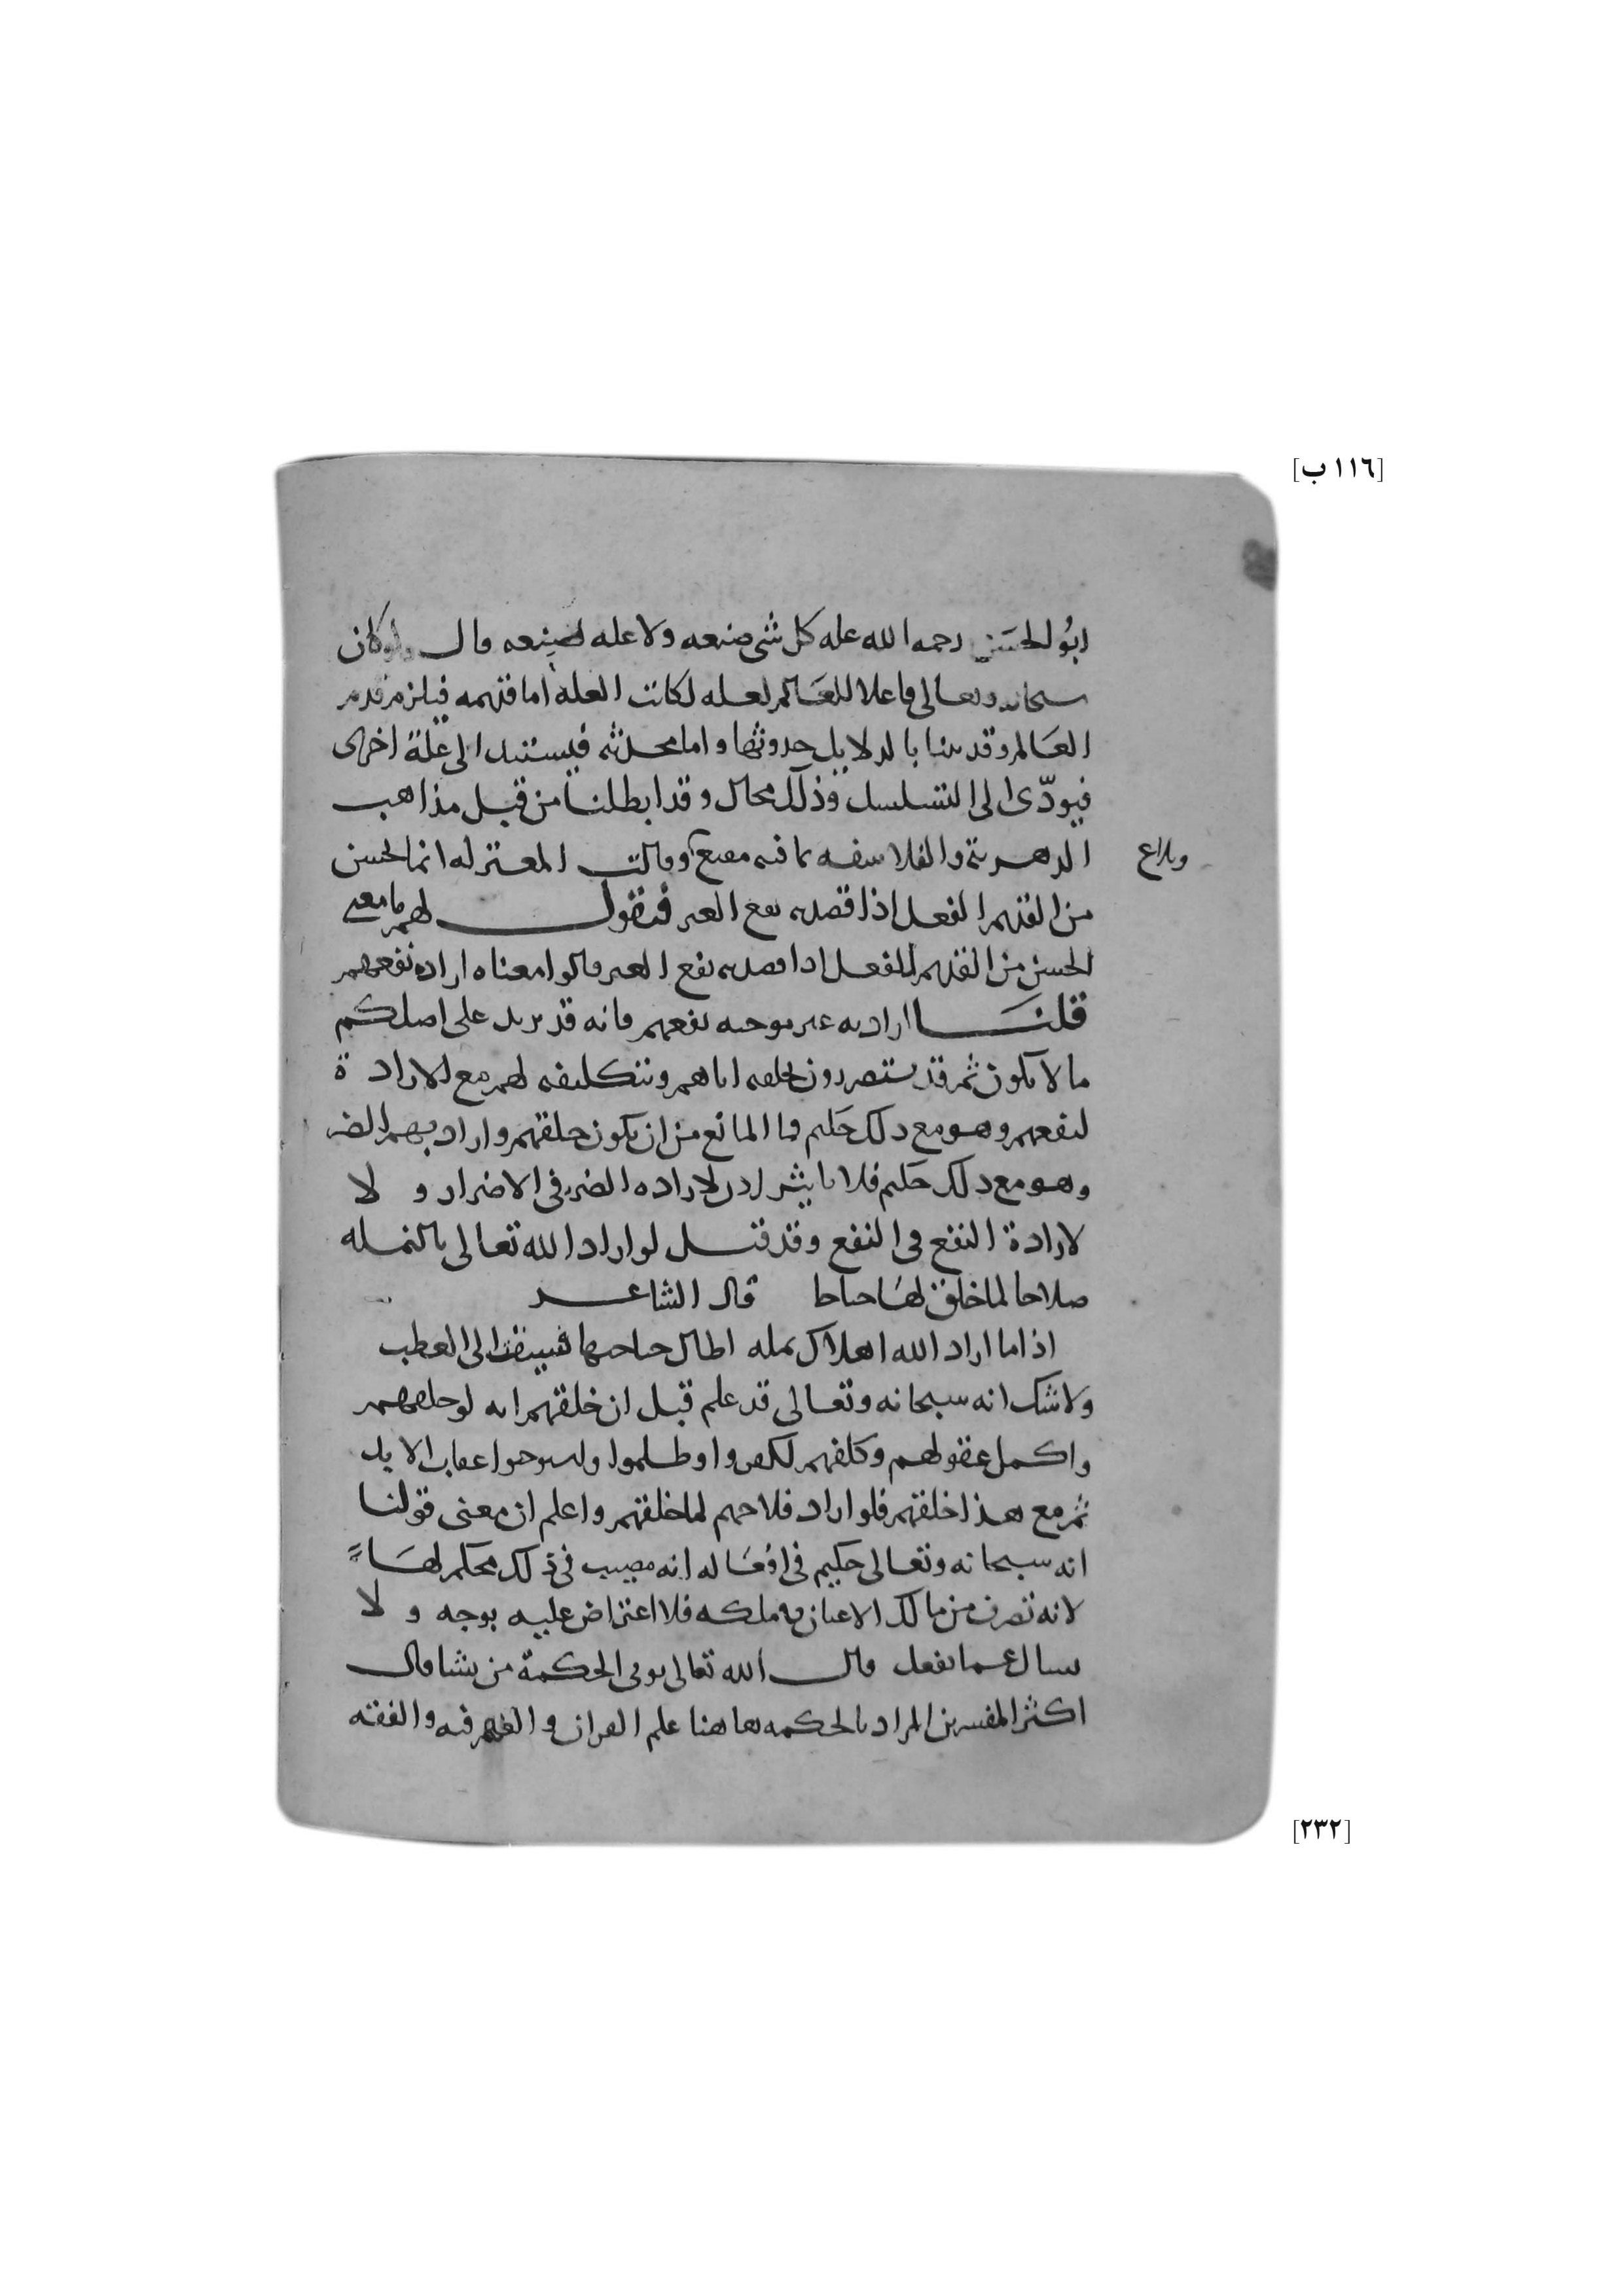 [١١٦ ب]
ابُو الحسَن رحمه الله عله كل شى صنعه ولا عله لصنعه قال ولو كان
سبحانه وتعالى فاعلا للعَالم لعله لكانت العله اما قديمه فيلزم قدم
العَالم وقد بينا بالدلايل حدوثها واما محدثة فيستند الى علة اخرى
فيودّى الى التسلسل وذلك محال وقد ابطلنا من قبل مذاهب
الدهرية والفلاسفه بما فيه مقنع وقالت المعتزله انما لحسن
وبلاغ
من القديم الفعل اذا قصد به نفع الغير فنقول لهم ما معنى
الحسن من القديم الفعل اذا قصد به نفع الغير قالوا معناه اراده نفعهم
قلنَا اراديه غير موجبه نفعهم فانه قد يريد على اصلكم
ما لا يكون ثم قد يستضرون بخلقه اياهم وبتكليفه لهم مع الارادة
لنفعهم وهو مع ذلك حَكيم فما المانع من ان يكون خلقهم واراد بهم الضر
وهو مع ذلك حكيم فلا تاثير اذن لاراده الضر فى الاضرار ولا
لارادة النفع فى النفع وقد قيل لو اراد الله تعالى بالنمله
صلاحا لما خلق لهَا جناحا قال الشاعر
اذا ما اراد الله اهلاك نمله اطال جناحيها فسيقت الى العطب
ولا شك انه سبحانه وتعالى قد علم قبل ان خلقهم انه لو خلقهم
واكمل عقولهم وكلفهم لكفروا وظلموا وليستوجبوا عقاب الابد
ثم مع هذا خلقهم فلو اراد فلاحهم لما خلقهم واعلم ان معنى قولنا
انه سبحانه وتعالى حكيم فى افعَاله انه مصيب فى ذلك محكم لهَا
لانه تصرف من مالك الاعيان فى ملكه فلا اعتراض عليه بوجه ولا
يسال عما يفعل قال الله تعالى يوتى الحكمة من يشا قال
اكثر المفسرين المراد بالحكمه هاهنا علم القران والفهم فيه والفقه
[٢٣٢]